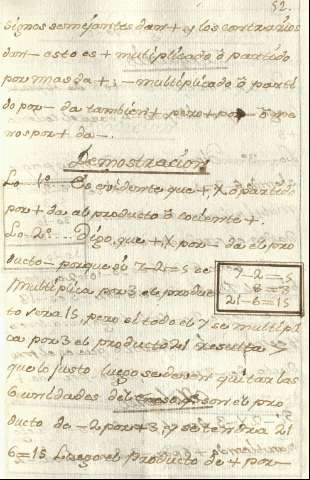 52.
signos semejantes dan + y los contrarios
dan - esto es + multiplicado ò partido
por mas da +; - multiplicado ò parti
do por - da tambien + pero + por - ò me
nos por + da -.
Demostracion
Lo 1º Es evidente que +, X, ò partido
por + da el producto ò cociente +.
Lo 2º... Digo, que +, X por - da el pro
ducto - porque si 7-2=5 se
multiplica por 3 el produc
to sera 15, pero si todo el 7 se multipli
ca por 3 el producto 21 excede a
que lo justo luego se deven quitar las
6 unidades del son el pro
ducto de - 2 por + 3 y se tendra 21
6=15. Luego el producto de + por -
7-2=5
3=3
21-6=15